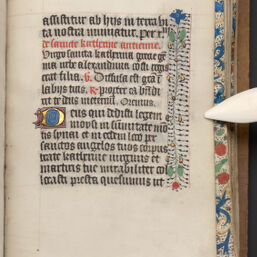 assistitur ab hijs in terra vi
ta nostra muniatur. per x
de sancta katherine antiene.
Virgo sancta katherina grecie ge
ma urbe alexandrina costi regis
erat filia. v. Diffusa est gra
labijs tuis. R. Propter ea bn̄di
xit te deus in eternū. Oremus.
Deus qui dedisti legem
moysi in summitate mo
tis synai et in eodem loco per
sanctos angelos tuos corpus
beate katherine virginis et
martiris tue mirabiliter col
locasti presta quesumus ut